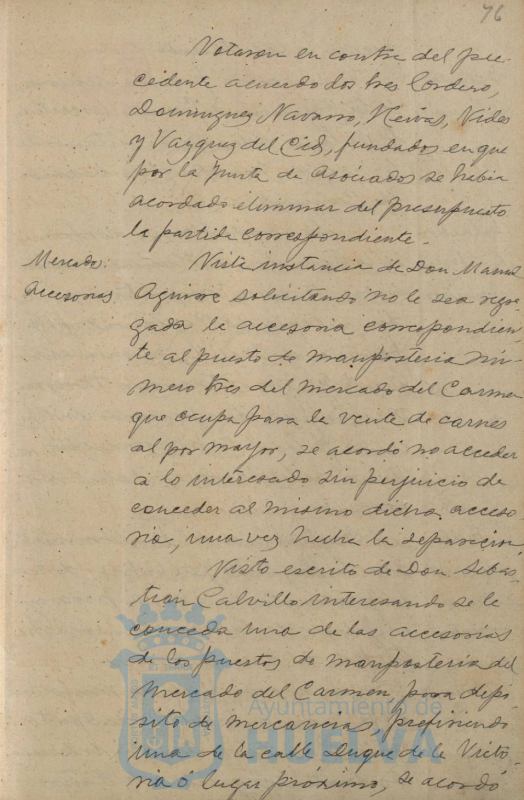 76
Votaron en contra del pre-
cedente acuerdo los Sres Cordero,
Dominguez Navarro, Neivas, Vides
y Vazquez del Cid, fundados en que
por la Junta de Asociados se habia
acordado eliminar del presupuesto
la partida correspondiente.
Mercado:
Accesorias
Vista instancia de Don Manuel
Aguirre solicitando no le sea rega-
gada la accesoria correspondien-
te al puesto de mamposteria nú-
mero tres del mercado del Carmen
que ocupa para la venta de carnes
al por mayor, se acordó no acceder
a lo interesado sin perjuicio de
conceder al mismo dicha acceso
ria, una vez hecha la separacion
Visto escrito de Don Sebas-
tian Calvillo interesando se le
conceda una de las accesorias
de los puestos de mamposteria del
Mercado del Carmen, para depó-
sito de mercancias, prefiriendo
una de la calle Duque de la Victo-
ria ó lugar próximo, se acordó
Ayuntamiento de
HUELVA